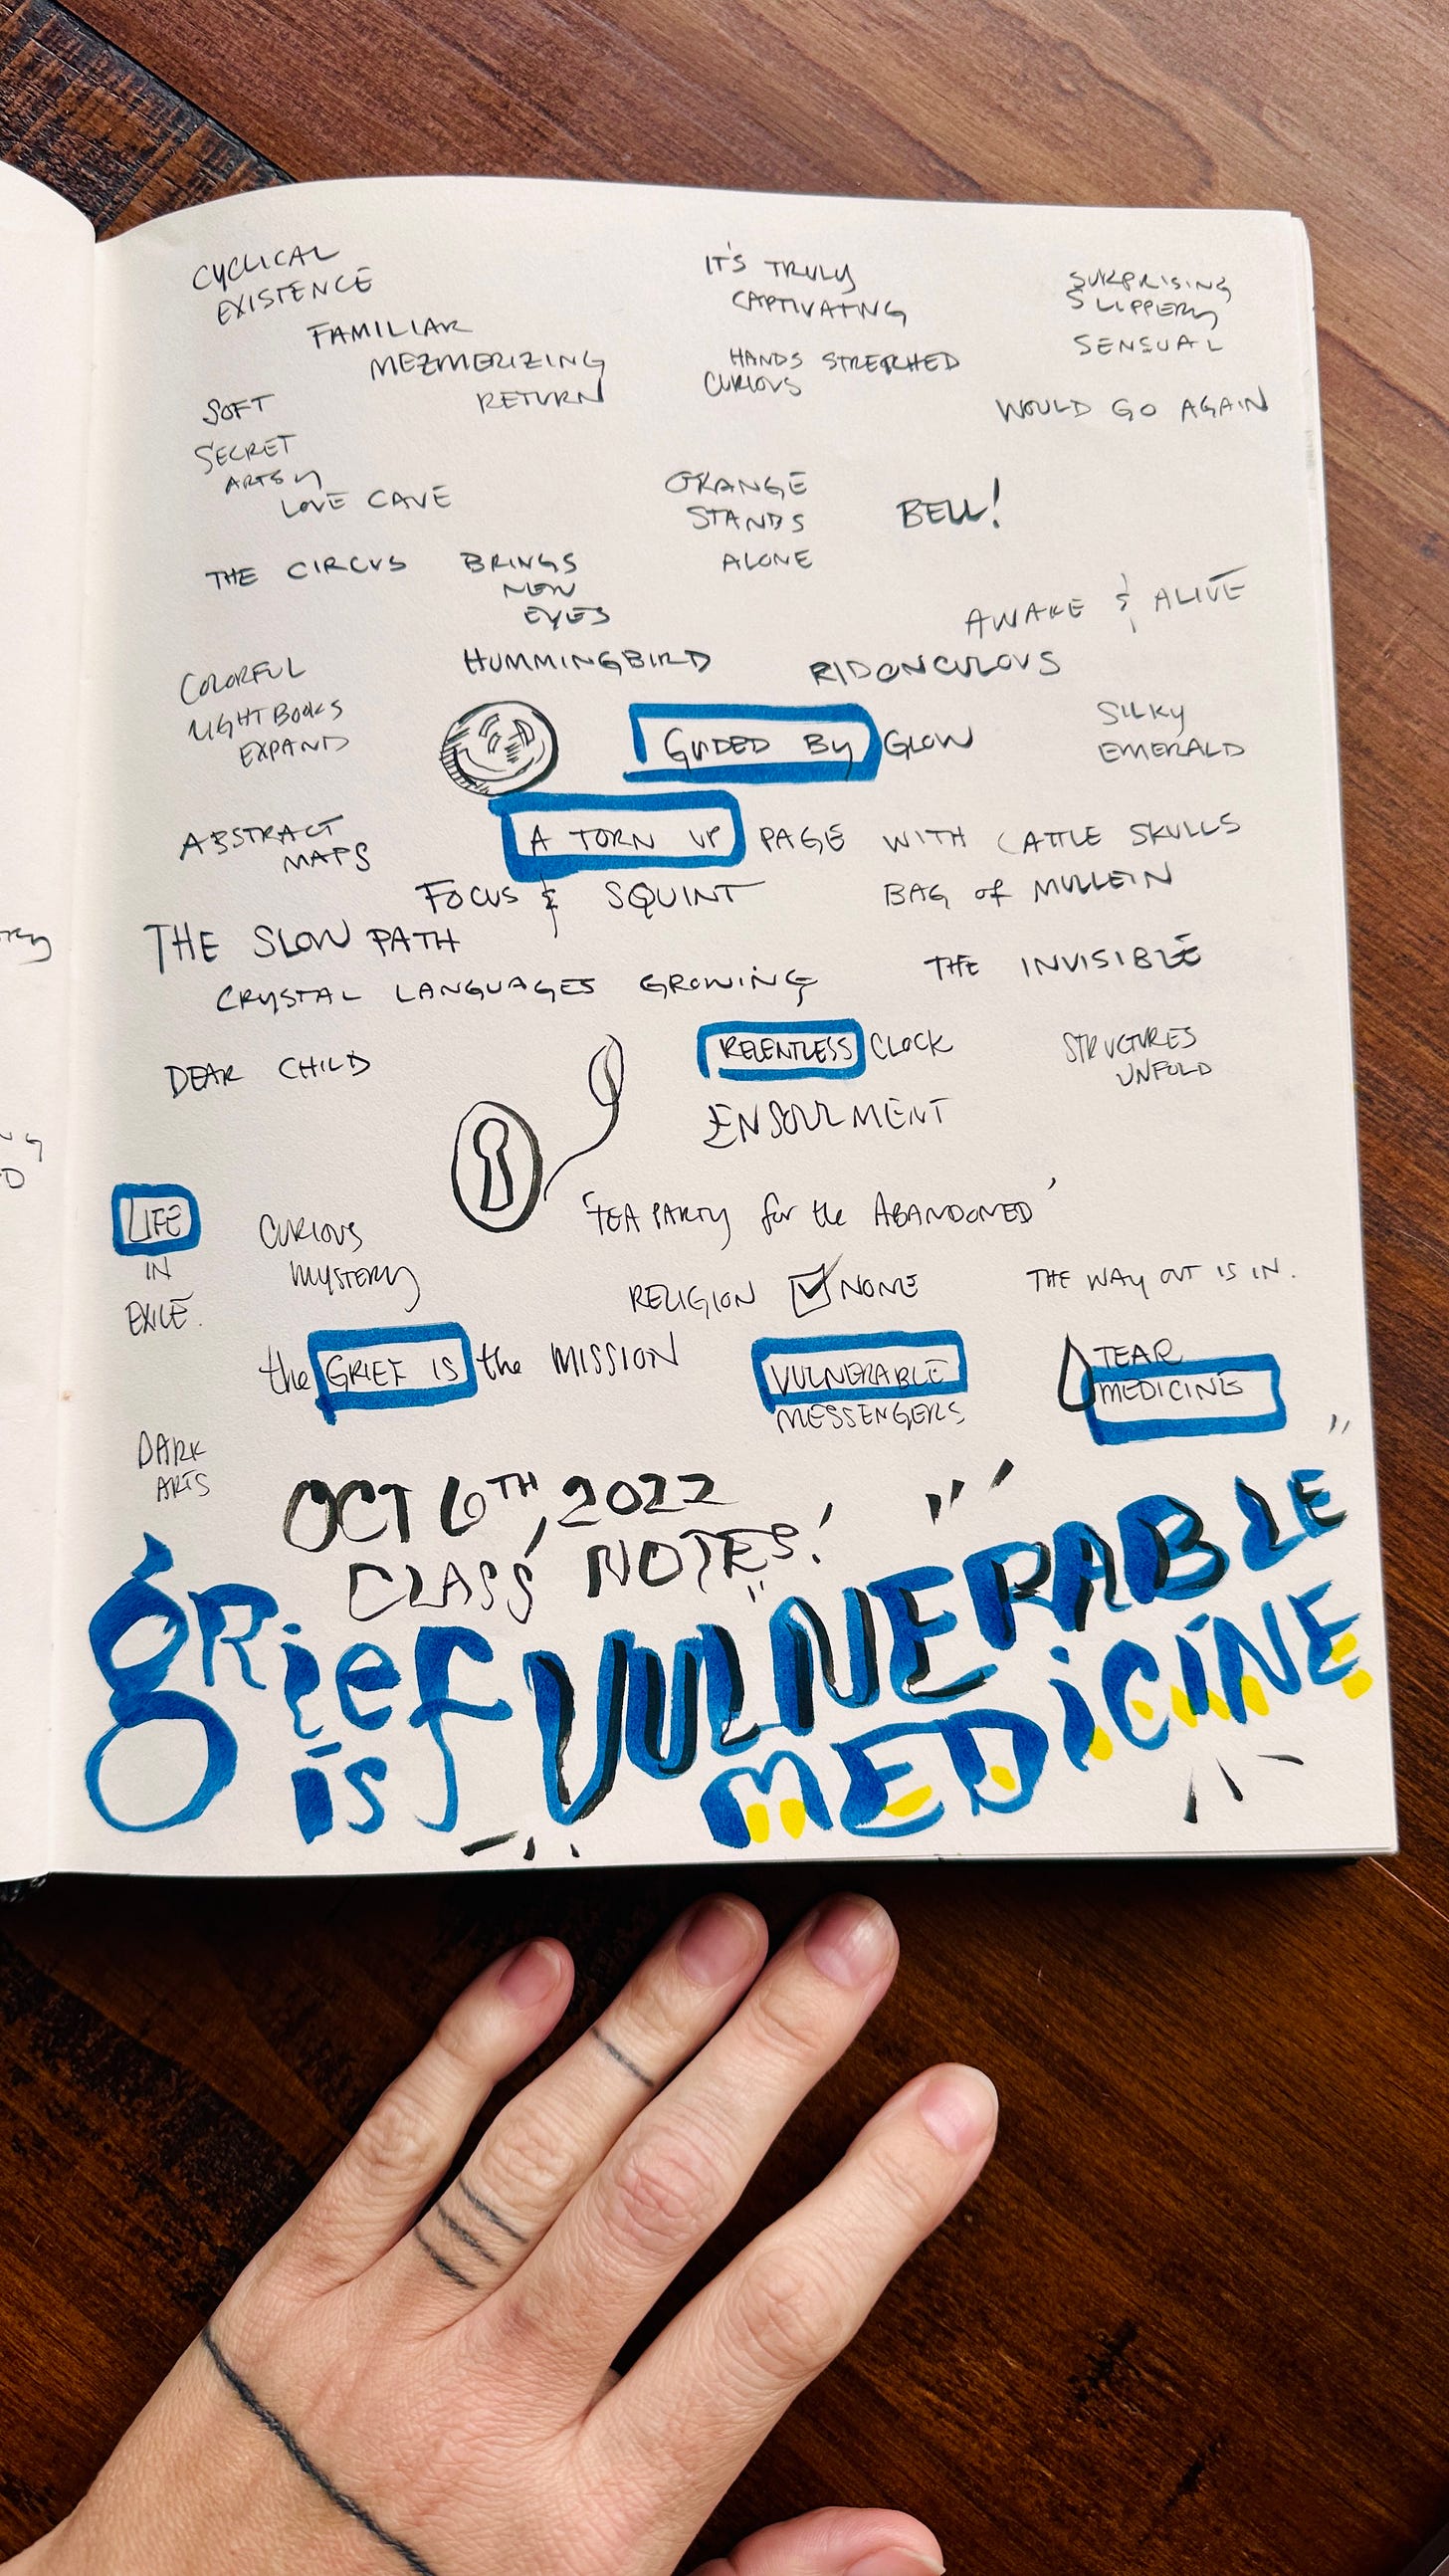 CYCLICAL
EXISTENCE
FAMILIAR
MEZMERIZING
RETURN
IT'S TRULY
CAPTIVATING
HANDS STRETCHED
CURIOUS
SURPRISING
SLIPPERY
SENSUAL
WOULD GO AGAIN
SOFT
SECRET
ARTSY
LOVE CAVE
ORANGE
STANDS
ALONE
BELL!
THE CIRCUS BRINGS
NEW
EYES
AWAKE & ALIVE
HUMMINGBIRD
RIDONCULOUS
COLORFUL
LIGHT BOOKS
EXPAND
GUIDED BY GLOW
SILKY
EMERALD
ABSTRACT
MAPS
A TORN UP PAGE WITH CATTLE SKULLS
FOCUS & SQUINT
BAG of MULLEIN
THE SLOW PATH
CRYSTAL LANGUAGES GROWING
THE INVISIBLE
DEAR CHILD
RELENTLESS CLOCK
STRUCTURES
UNFOLD
ENSOULMENT
LIFE
IN
EXILE.
CURIOUS
MYSTERY
'TEA PARTY for the ABANDONED'
RELIGION ☑ NONE
THE WAY OUT IS IN.
the GRIEF IS the MISSION
VULNERABLE
MESSENGERS
TEAR
MEDICINE
DARK
ARTS
OCT 6TH, 2022
CLASS NOTES!
gRief
is
VULNERABLE
MEDiCiNE